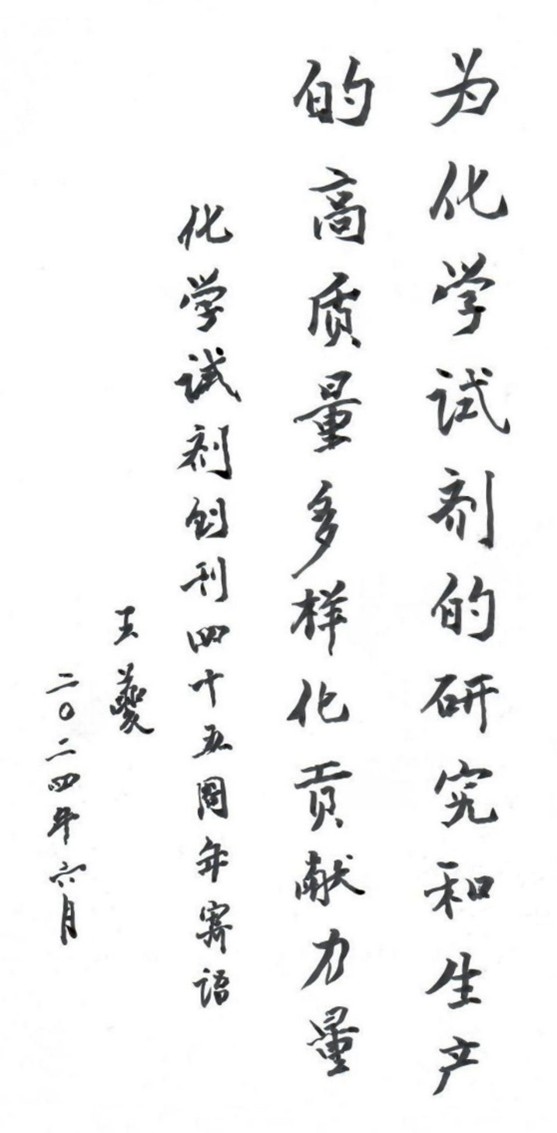 为化学试剂的研究和生产
的高质量多样化贡献力量
化学试剂创刊四十五周年寄语
王夔
二〇二四年六月